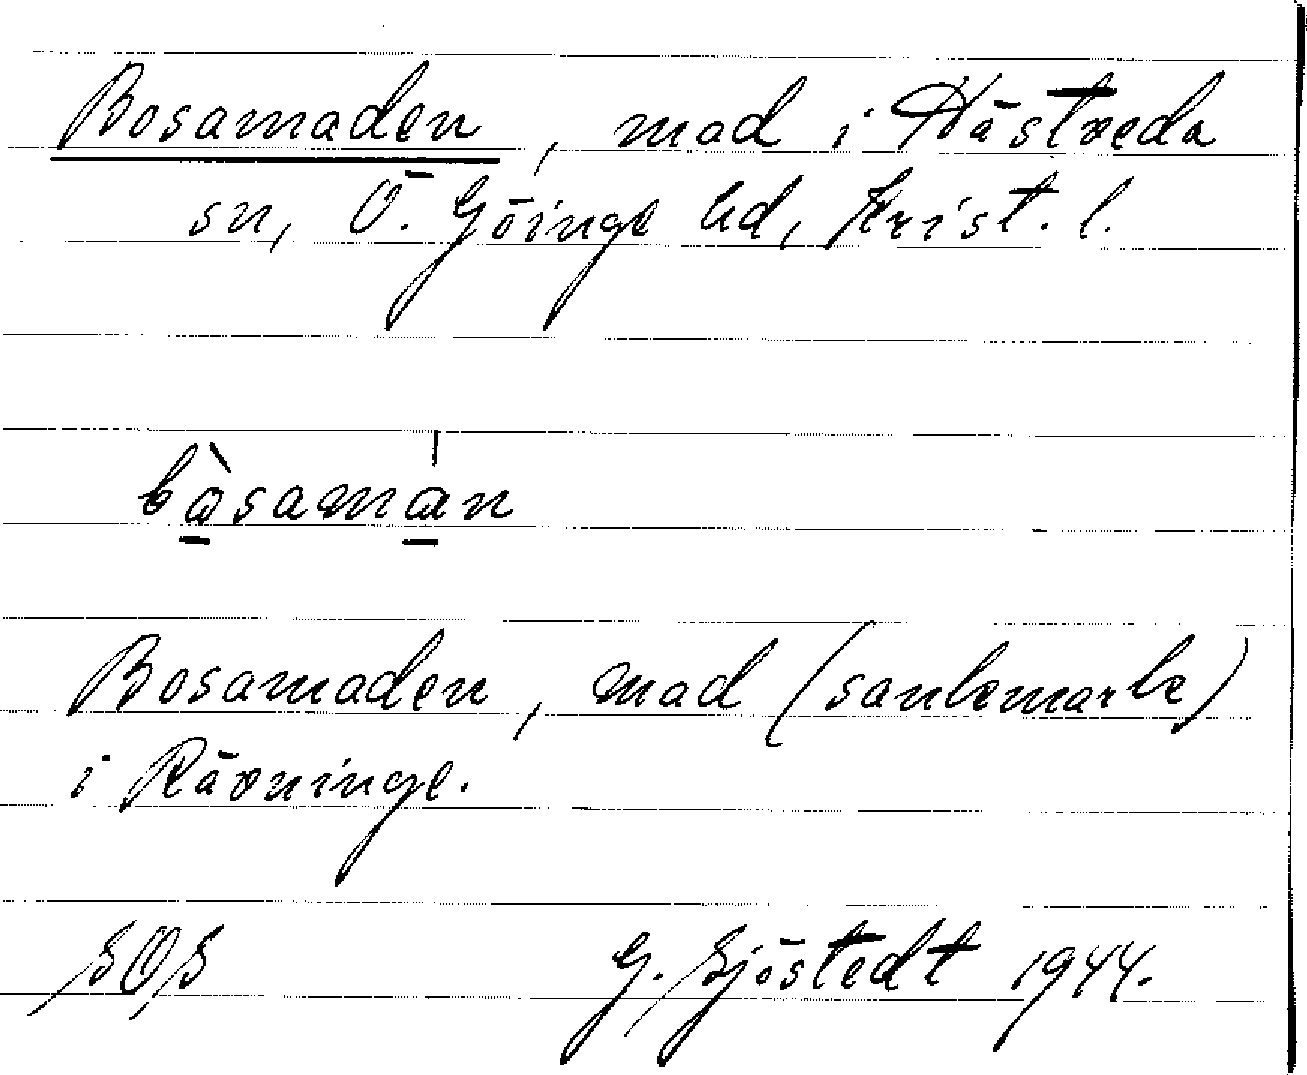 Bosamaden, mad i Hästveda
sn, Ö. Göinge hd, Krist. l.
bò̲samɑ̲́n
Bosamaden, mad (sankmark)
i Rävninge.
SOS G. Sjöstedt 1944.